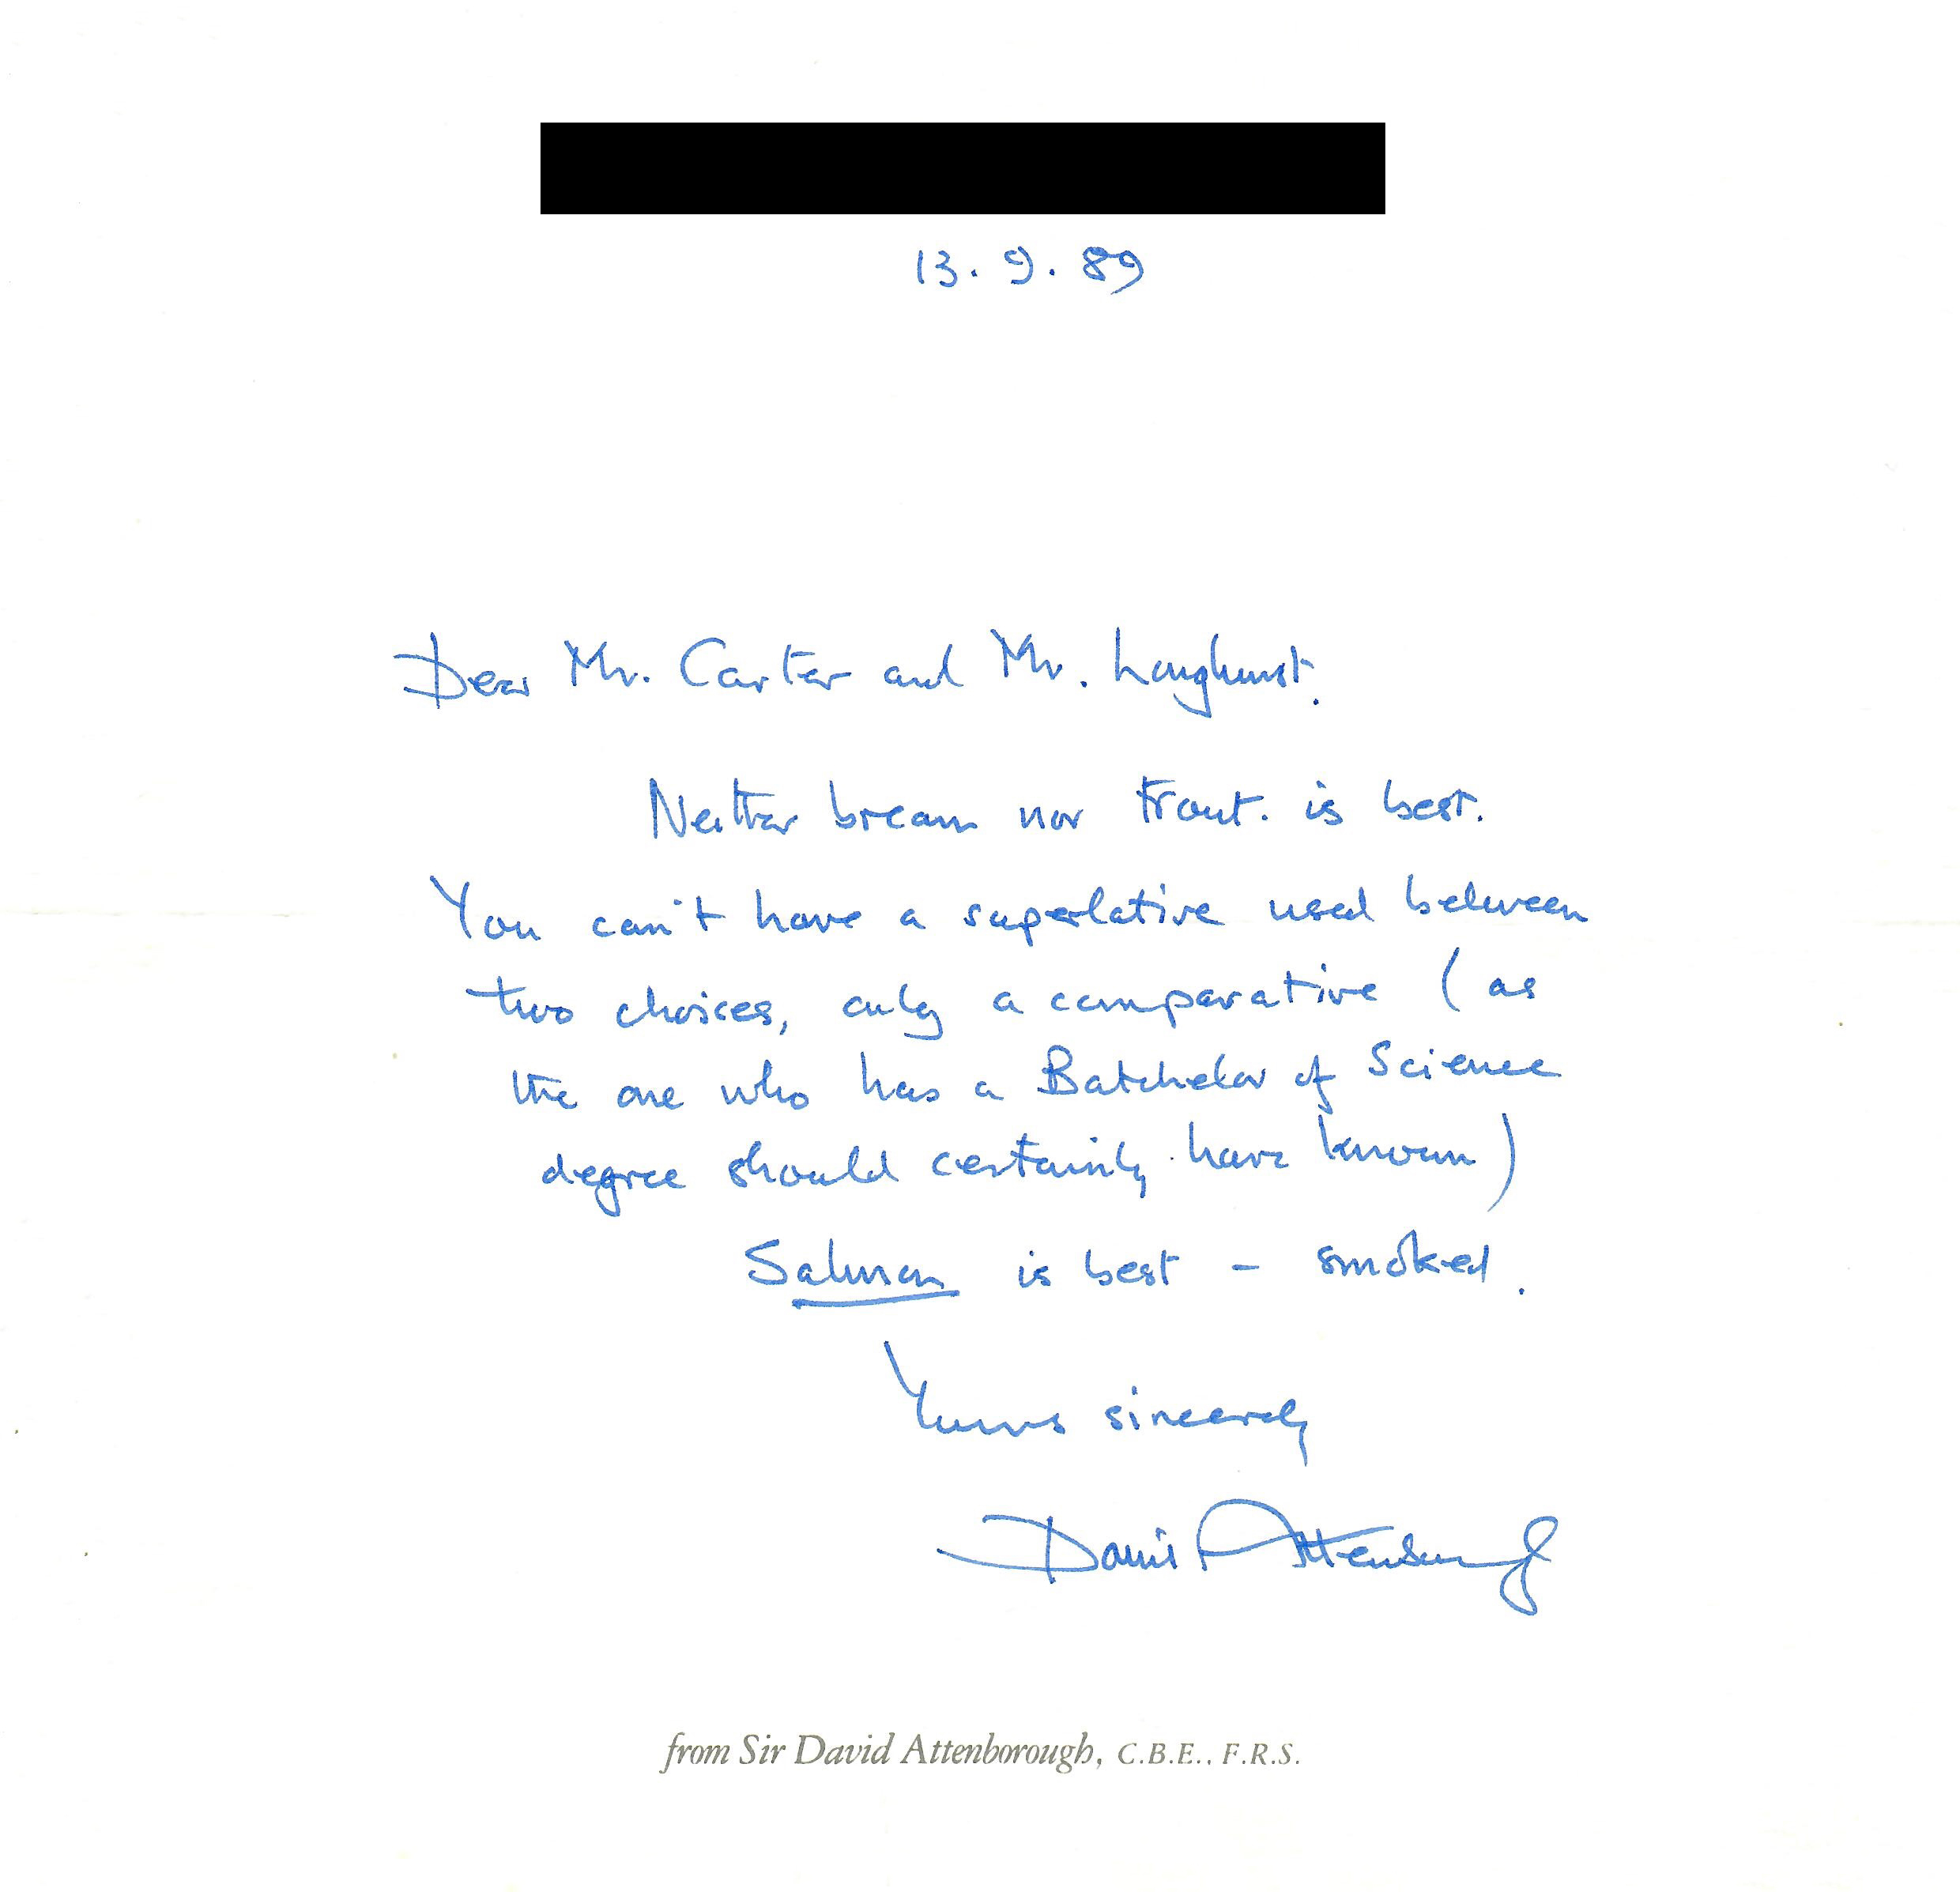 13. 9. 89
Dear Mr. Carter and Mr. Longhurst.
Neither bream nor trout. is best.
You can't have a superlative used between
two choices, only a comparative (as
the one who has a Batchelor of Science
degree should certainly have known)
Salmon is best - smoked.
Yours sincerely
David Attenborough
from Sir David Attenborough, C.B.E., F.R.S.